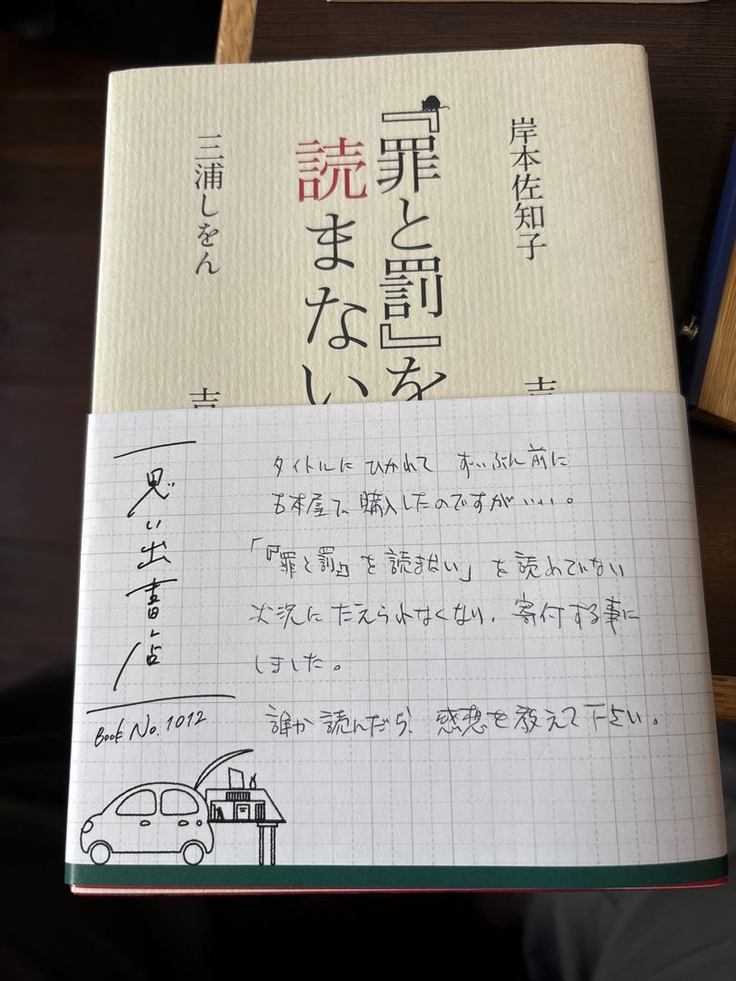 岸本佐知子
『罪と罰』を
読まない
三浦しをん
吉
吉
思い出書店
Book No. 1012
タイトルに ひかれて ずいぶん前に
古本屋で、購入したのですが・・・。
「『罪と罰』を読まない」を読れていない
状況にたえられなくなり、寄付する事に
しました。
誰か読んだら、感想を教えて下さい。